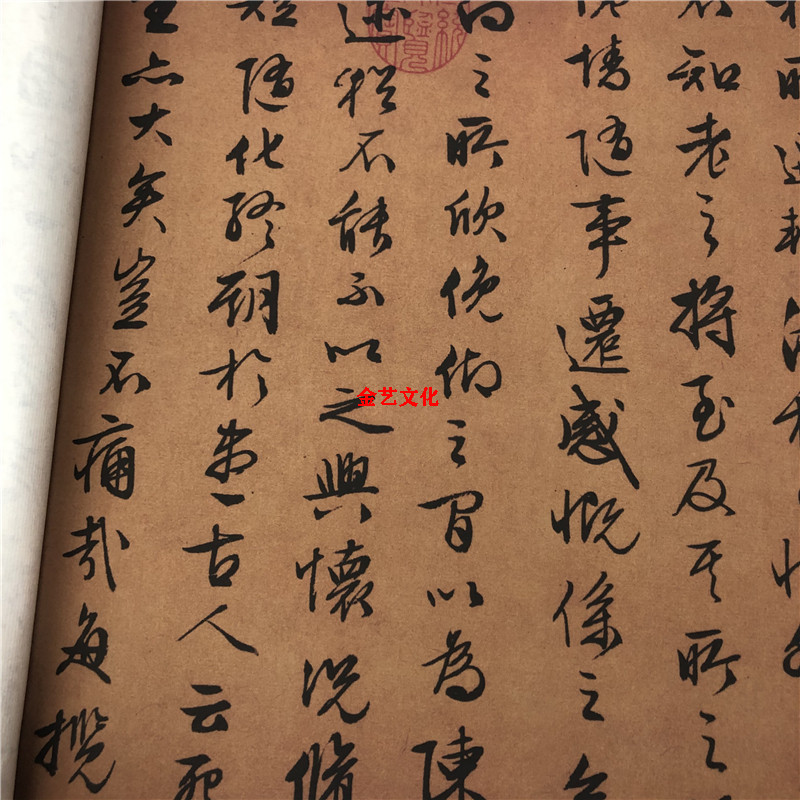 不知老之將至及其所之
惓情隨事遷感慨係之矣
向之所欣俛仰之閒以為陳
迹猶不能不以之興懷況脩
短隨化終期於盡古人云死
生亦大矣豈不痛哉每攬
金艺文化